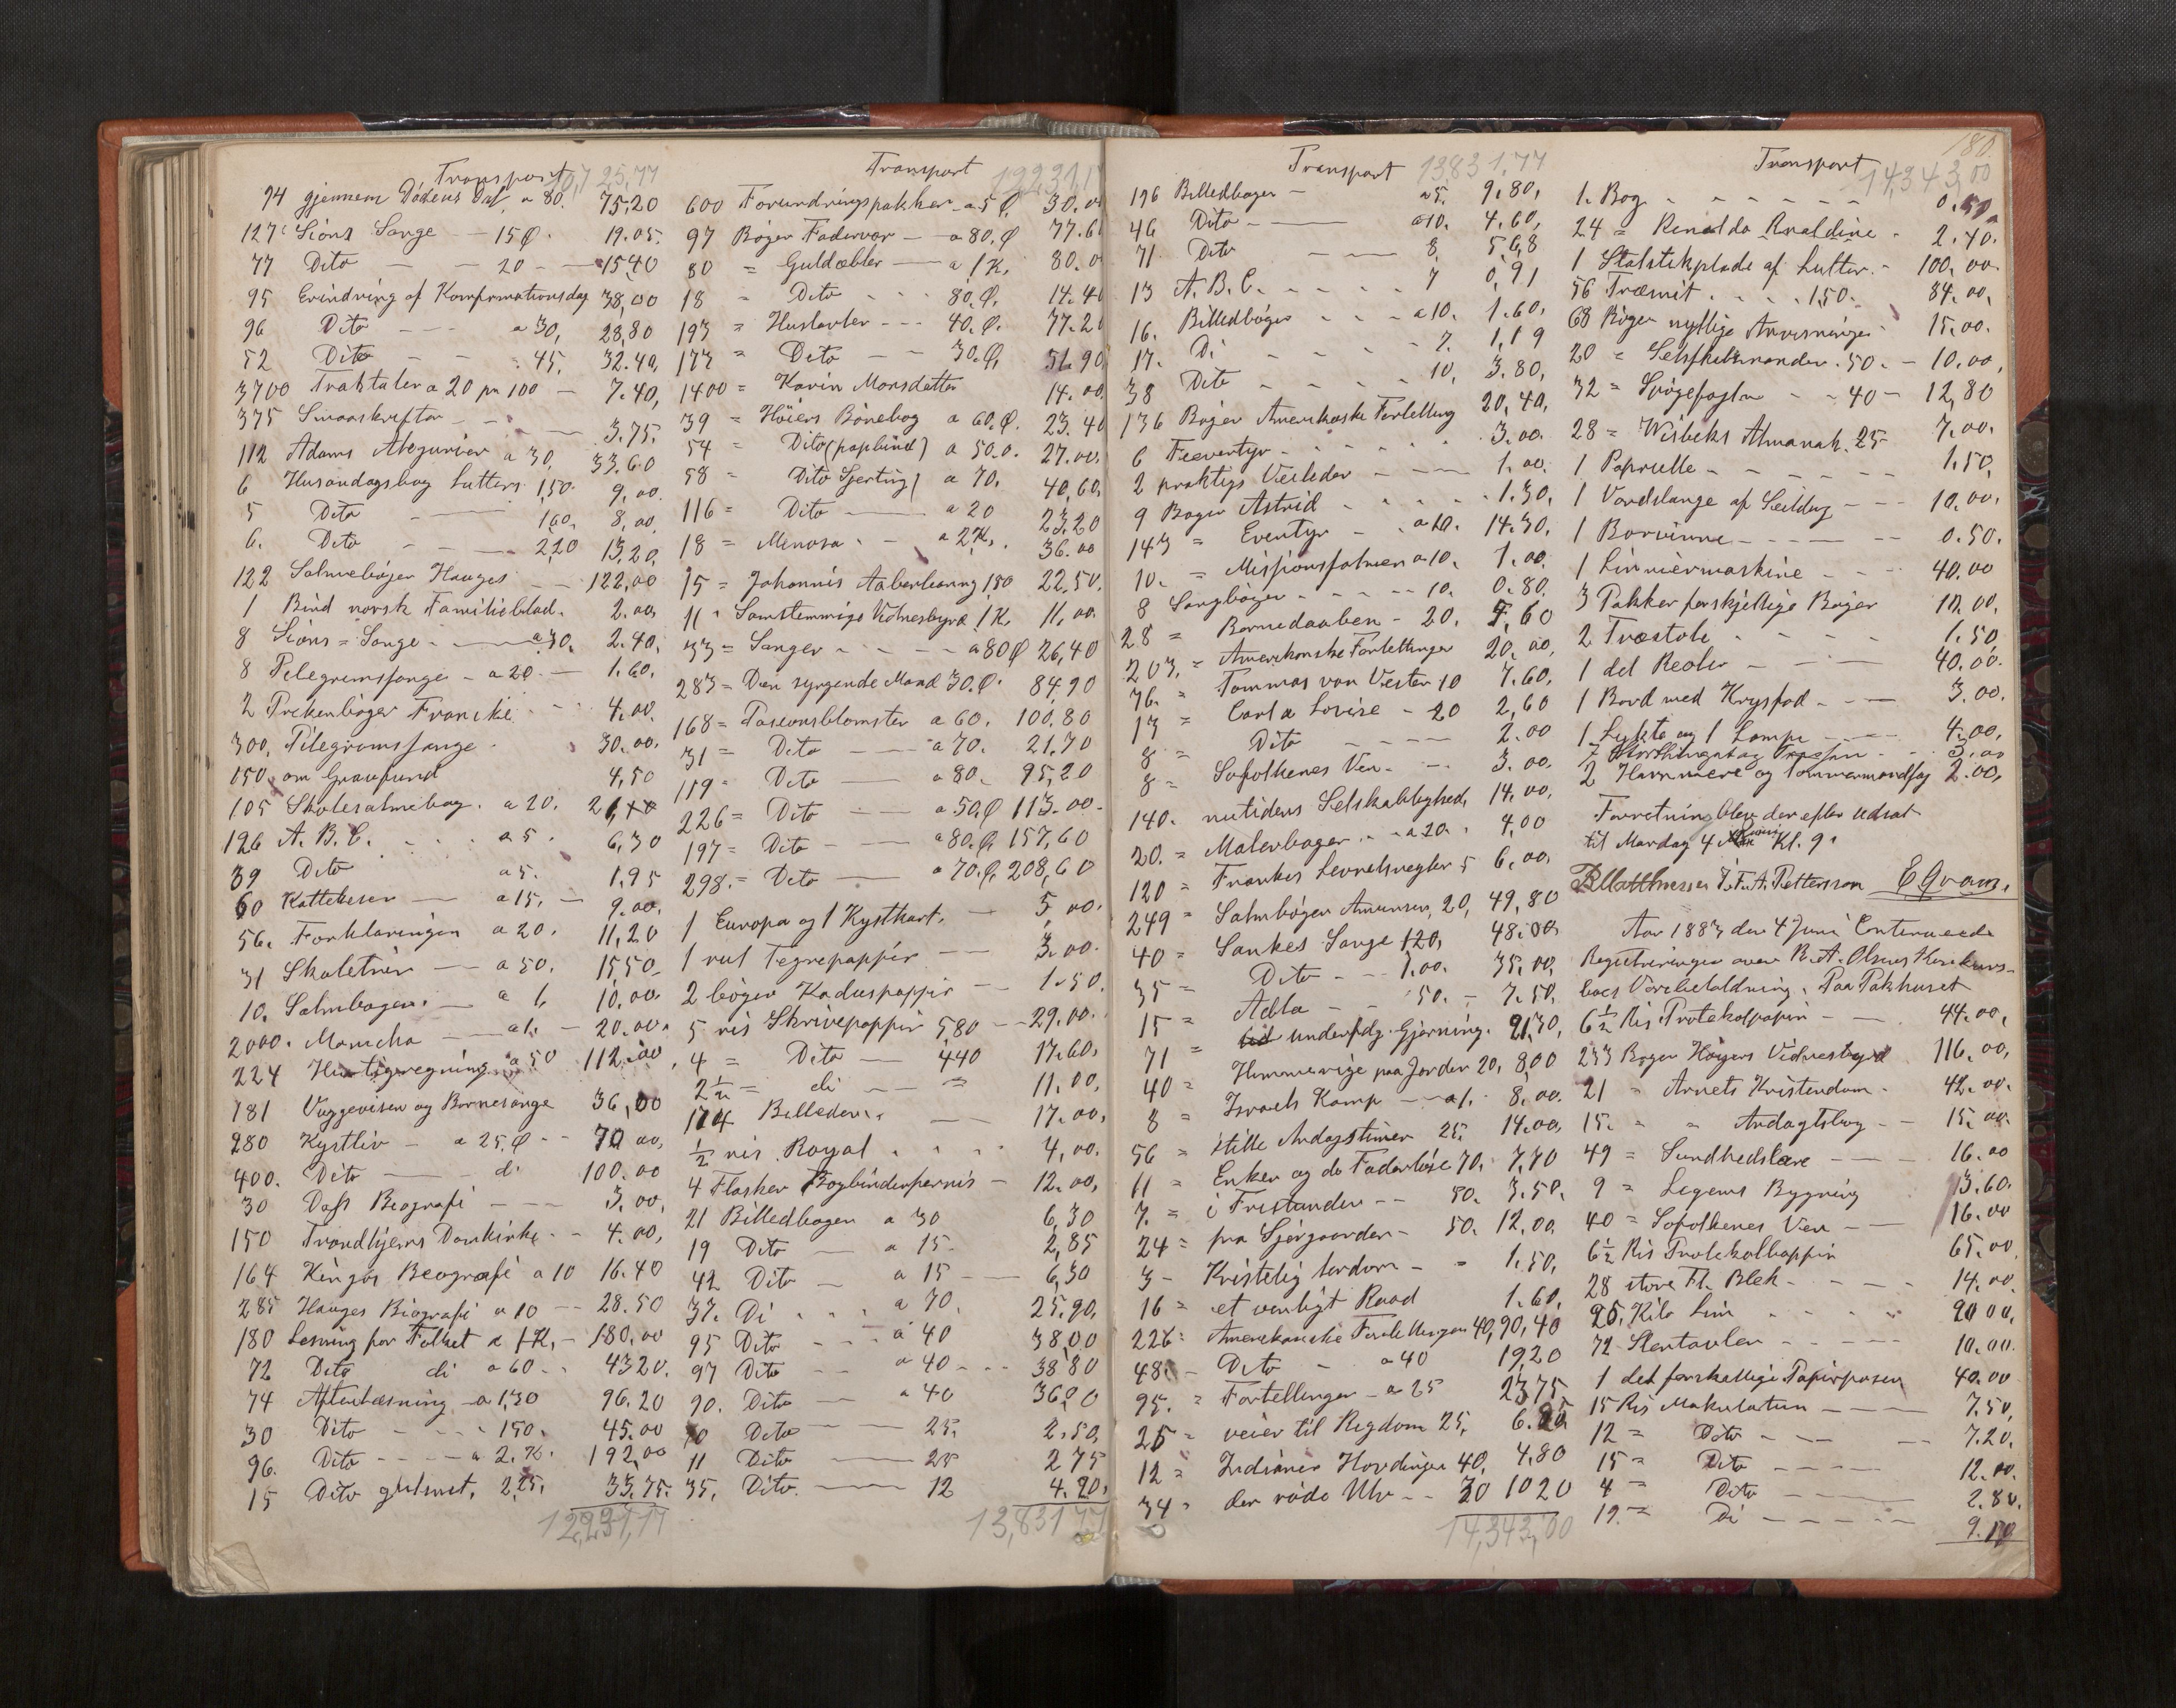 Transport 10,725,77
94 gjennem Dødens Dal a 80. 75,20
127 Sions Sange — 15 Ø. 19.05.
77 Dito — — 20 — 15,40
95 Erindring af Konfirmationsdag 38,00
96 Dito — — a 30, 28,80
52 Dito — — 45. 32.40,
3700 Traktater a 20 pr 100 — 7.40,
375 Smaaskrifter — — 3.75.
112 Adams a 30, 33.60
6 Husandagsbog Lutters 1,50. 9,00.
5 Dito — 160, 8,00,
6. Dito — — 2,20 13,20,
122 Salmebøger Hauges — 122,00
1 Bind norsk Familieblad. 2.00,
8 Sions = Sange — a 30, 2.40,
8 Pelegrimsfange — a 20 — 1.60.
2 Prekenbøger Francke 4,00.
300, Pilegrimsfange 30.00.
150 om 4,50
105 Skolesalmebog. a 20. 21,00
126 A. B. C. a 5. 6,30
39 Dito a 5. 1,95
60 Kattekesen — a 15, — 9.00,
56. Forklaringen a 20. 11,20
31 Skaletrin — a 50. 15,50
10. Salmbogen. — a 1, 10.00
2000. — a 1. — 20.00.
224 Hurtigregning a 50 112.00,
181 Vuggeviser og Bornesange 36,00
280 Kystliv — a 25 Ø — 70 00,
400. Dito — di 100.00
30 Dass Beografi — — 3.00,
150 Trondhjems Domkirke — 4.00,
164 Kingos Beografi a 10 16.40
285 Hauges Biografi a 10 — 28.50
180 Lesning for Folket a 1 K, — 180,00
72 Dito di a 60 — 43 20.
74 Aftenlæsning — a 1,30 96.20
30 Dito — 150. 45.00
96. Dito — — a 2. K. 192,00
15 Dito gulsnit, 2,25, 33,75.
12,231,17
Transport 12231,17
600 Forundringspakker — a 5 Ø. 30.00
97 Bøger Fadervor — a 80. Ø 77.6
80 = Guldæbler — a 1 K. 80.0
18 = Dito — 80. Ø. 14.40
193 = Hustavler — 40. Ø. 77.20
173 = Dito — — 30. Ø, 51.90,
1400 = Karin Monsdatter 14.00,
39 = Høiers Bønebog a 60. Ø. 23.40
54 = Dito (papbind) a 50. Ø. 27.00,
58 = Dito Sjerting) a 70. 40,60,
116 = Dito — a 20 23,20
18 = Menosa — a 2 K. 36.00
15 = Johannis Aabenbaring 1,50 22,50.
11 = Samstemmige Vidnesbyrd 1 K. 11,00.
33 = Sanger — a 80 Ø 26,40
283 = Den syrgende Mand 30. Ø. 84.90
168 = Pasionsblomster a 60. 100,80
31 = Dito — a 70. 21.70
119 = Dito — a 80. 95,20
226 = Dito — a 50, Ø 113.00
197 = Dito — a 80. Ø, 157,60
298. = Dito — a 70. Ø. 208,60
1 Europa og 1 Kysthart. — 5,00.
1 rul Tegnepappir — 3.00.
2 bøger Karduspappir — 1.50.
5 ris Skrivepappir 5,80 — 29.00.
4 = Dito — 440 17.60,
2½ = di — = 11.00,
174 Billeder. — 17.00,
½ ris Royal . . . 4,00.
4 Flasker Bogbinderfernis — 12.00,
21 Billedbøgen a 30 6,30
19 Dito — a 15 2,85
42 Dito — a 15 — 6,30
37. Di . . a 70. 25.90,
95 Dito — a 40 38,00
97 Dito — a 40 — 38 80
90. Dito — a 40 36,00
10 Dito — 25. 2,50,
11 Dito — 25 2 75
35, Dito. — 12 4.20,
13,831 77
Transport 13,831,77
196 Billedbøger — a 5. 9.80,
46 Dito — a 10. 4.60,
71 Dito — — 8, 5,68
13 A. B. C. — — 7 0,91
16. Billedbøger — a 10. 1.60,
17. Di — 7. 1,19
38 Dito — 10, 3.80,
136 Bøger Amerikaske Fortelling 20,40,
6 Feeventyr — 3.00.
2 praktigs Veileder — 1.00.
9 Bøger Astrid — 1.30,
143 = Eventyr — a 10. 14.30,
10. = Misjionssalmen a 10. 1.00.
8 Sangbøger — — 10. 0.80.
28 = Barnedaaben — 20. 5,60
203, = Amerikanske Fortellinger 20,00,
76. = Tommas von Vesten 10 7.60,
13 = Carl a Lovise — 20 2,60
8 = Dito — 2.00
8 = Sofolkenes Ven — 3.00,
140. nutidens Selskabelighed, 14.00,
20. = Malerbøger — a 20. 4,00
120 = Frankes Levnelsregler 5 6.00,
249 = Salmbøger Amunsen, 20, 49,80
40 = Sankes Sange 120, 48.00
35 = Dito — 1.00. 35,00,
15 = Adla — 50. — 7.50,
71 = underfulg. Gjerning. 21,30,
40 = Himmerige paa Jorden 20, 8,00
8 = Israels Kamp — a 1. 8,00.
56 = stille Andagstimer 25. 14.00,
11 = Enken og de Faderløse 70. 7,70
7. = i Fristunden — 50. 3.50.
24 = fra Sjørgaarden — 50. 12,00,
3 — Kristelig lerdom — 1.50,
16 = et venligt Raad 1.60,
226 = Amerikanske Fortellinger 40, 90,40
48. — Dito — a 40 19,20
95. = Fortellinger — a 25 23,75
25 = veier til Rigdom 25, 6.25
12 = Indianer Høvdinger 40, 4.80
34 = den røde Ulv — 30 10 20
14,343,00
180
Transport 14,343,00
1. Bog — 0.50,
24 = Renaldo Renaldine — 2.40.
1 Stalstikplade af Lutter. — 100,00.
56 Træsnit . . . 1,50. 84.00,
68 Bøger nyttige Anvisninger 15.00.
20 = 50. — 10.00,
32 = Spøgefuglen — 40 — 12,80
28 = Wisbeks Almanak. 25 7.00.
1 Paprulle — 1.50,
1 Vandslange af Seildug — 10.00,
1 Borvinne — — 0.50.
1 Linnièrmaskine — 40.00
3 Pakker forskjellige Bøger 10.00,
2 Træstole — 1.50,
1 del Reoler — 40.00.
1 Bord med Krysfod — 3.00.
1 Lykte og 1 Lampe — 4.00,
3.00
2 Hammere og Tommermandsag 2.00,
Forretnin blev der efter Udsat
til Mandag 4 Juni Kl. 9.
J. F. A. Pettersson E Qvam.
Aar 1883 den 4 Juni Contenueede
Registreringen over B. A. Olsens Konkurs-
boes Vårebeholdning. Paa Pakhuset
6½ Ris Protekolpapir — 44.00,
233 Bøger Høyers Vidnesbyrd 116,00,
21 = Arnets Kristendom — 42.00.
15. = = Andagtsbog — 15,00.
49 = Sundhedslære — 16.00
9 = Legems Bygning 13.60.
40 = Sofolkenes Ven — 16.00
6½ Ris Protekolpappir 65.00,
28 store Fl. Blek — 14.00
25, Kilo Lim 20 00,
72 Stentavler — 10.00.
1 del forskallige Papirposer 40.00
15 Ris Makulatur — 7.50,
12 = Dito — 7.20,
15 = Dito — 12.00.
4 = Dito — 2.80.
19 = Di —